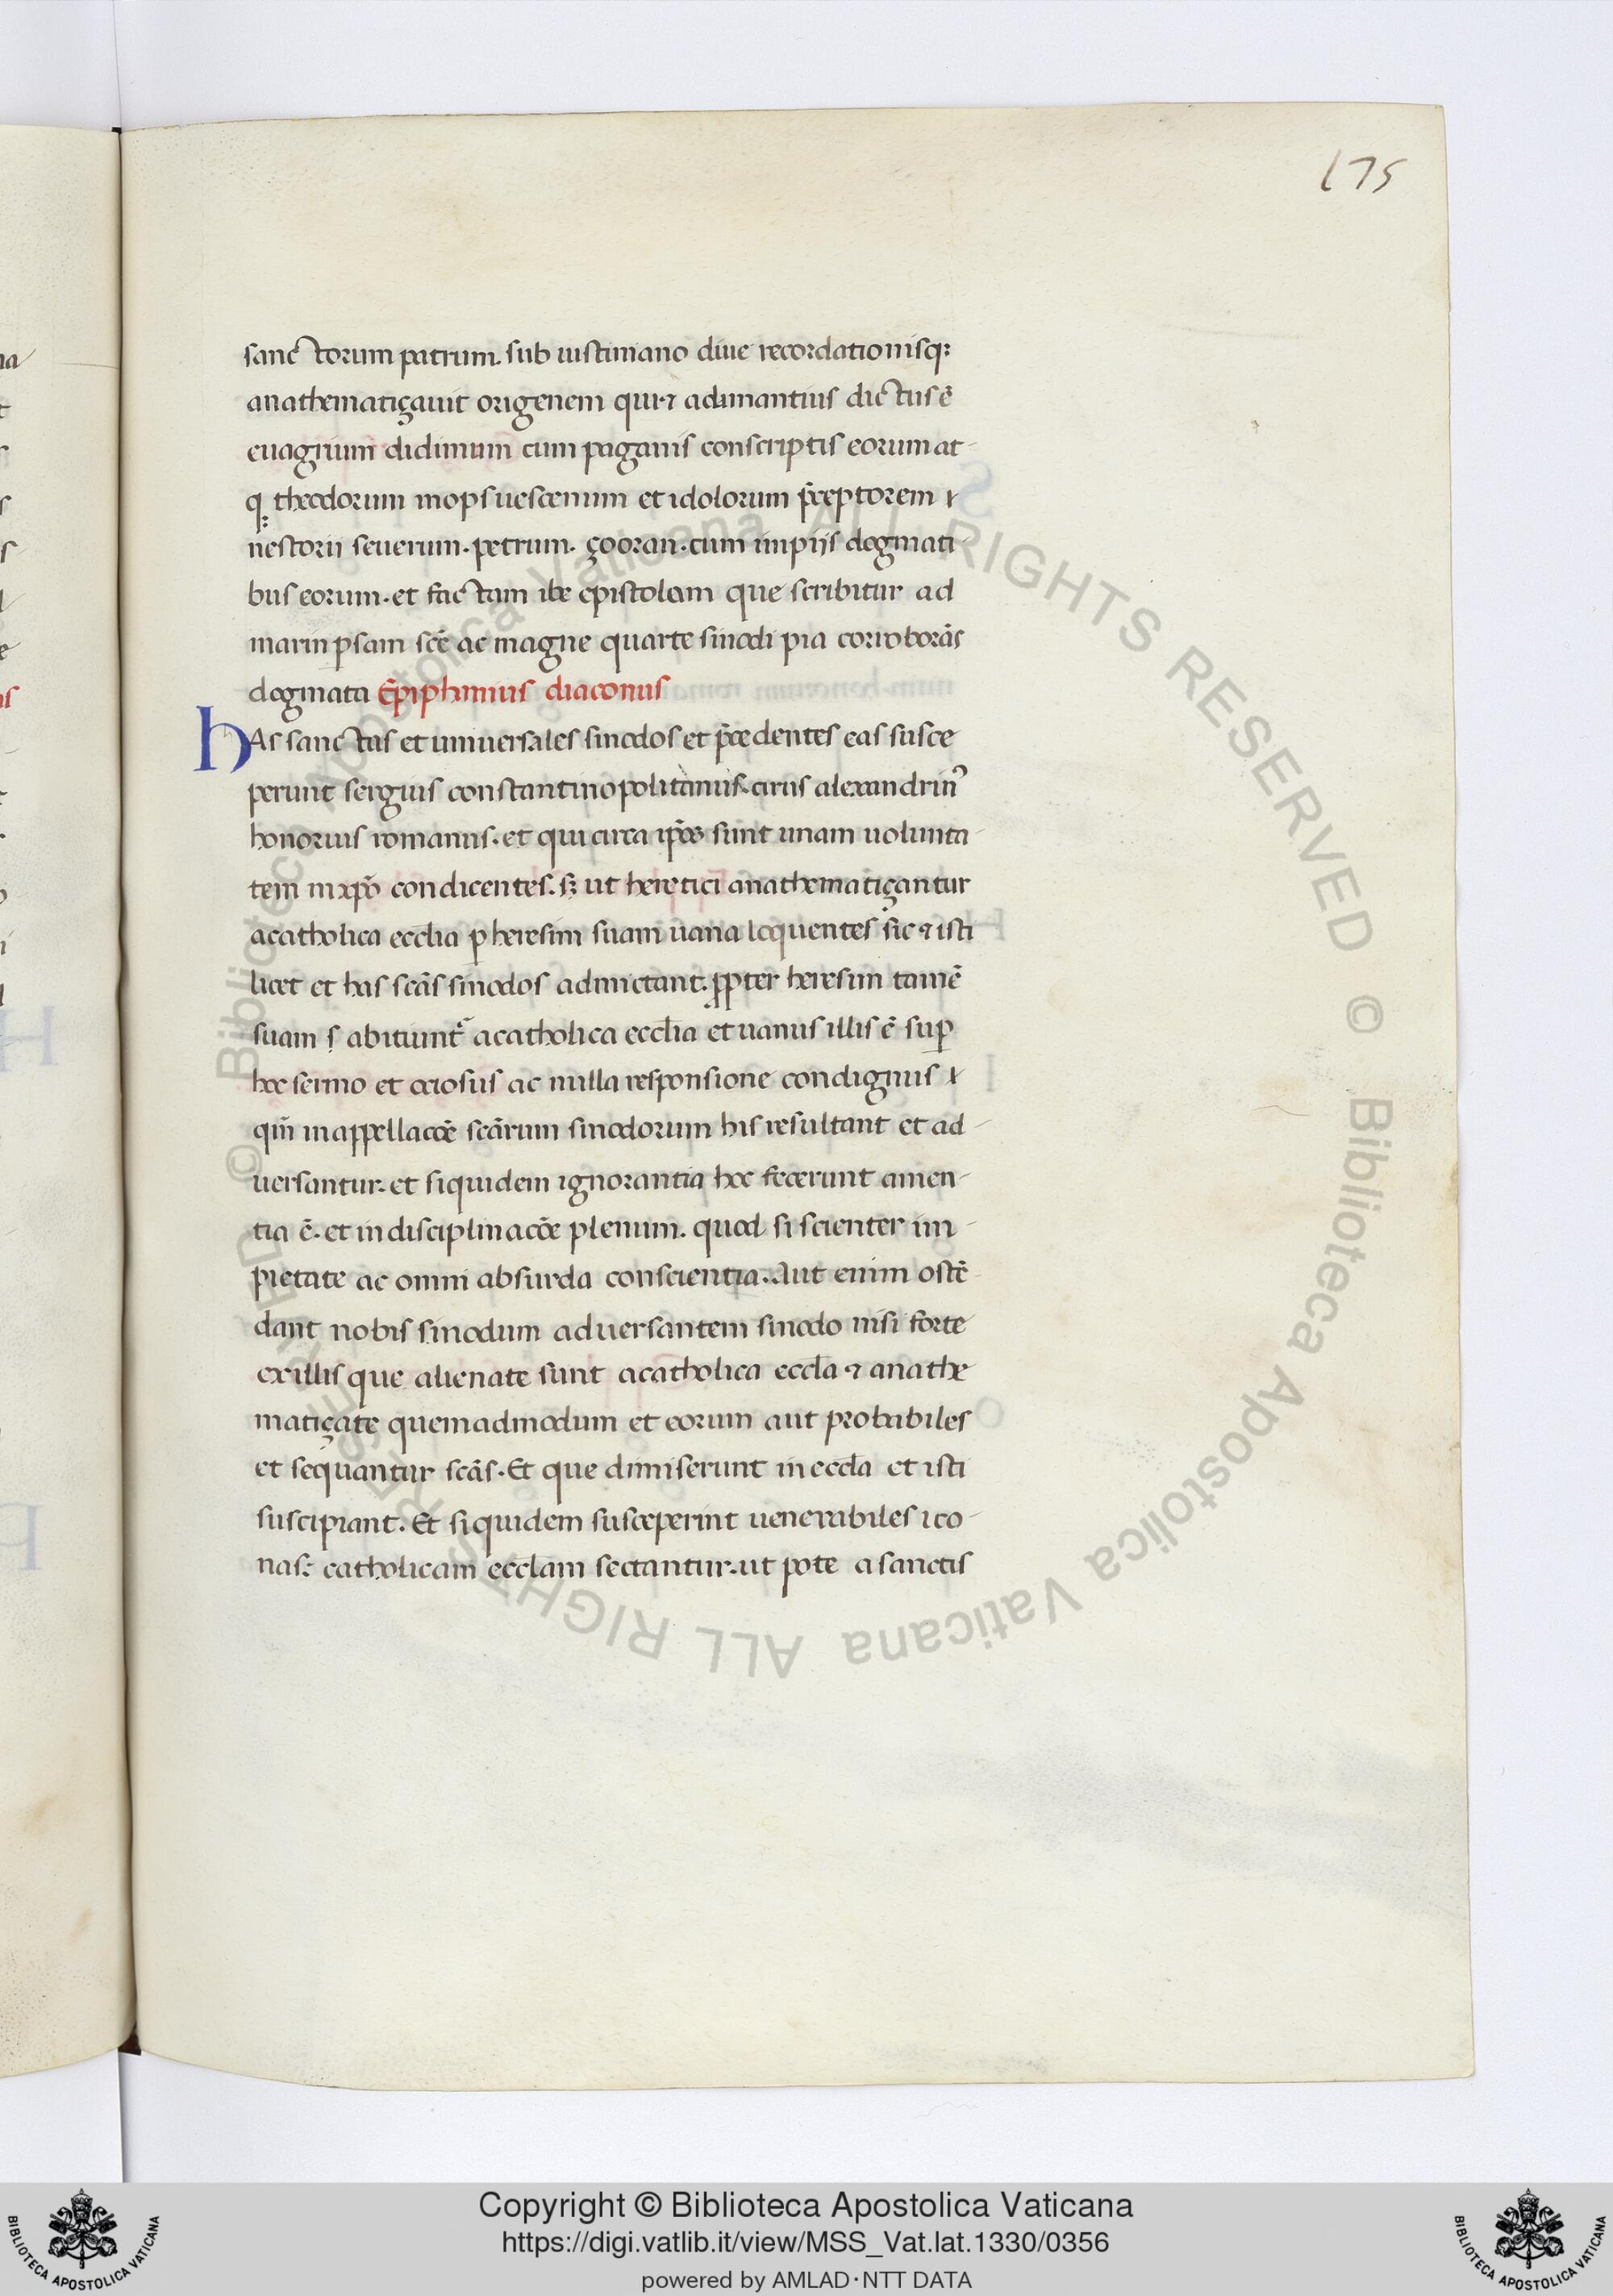 175
sanctorum patrum. sub iustiniano diue recordationisq:
anathematiçauit origenem qui ⁊ adimantius dictus ē
euagrium didimum cum paganis conscriptis eorum at-
q: theodorum mopsuestenum et idolorum p̄ceptorem ⁊
nestorii seuerum. petrum. çooran. cum impiis dogmati-
bus eorum. et factam ibe epistolam que scribitur ad
marin psam scē ac magne quarte sinodi pia corroborās
dogmata Epiphanius diaconus
hAs sanctas et uniuersales sinodos et p̄cedentes eas susce
perunt sergius constantinopolitanus. cirus alexandrin⁹
honorius romanus. et qui circa ip̄os sunt unam uolunta-
tem in xp̄o condicentes. sꝫ ut heretici anathematiçantur
a catholica ecclia p heresim suam uana loquentes sic ⁊ isti
licet et has scās sinodos admictant. ꝓpter heresim tamē
suam abitiunt̄ a catholica ecclia et uanus illis ē sup
hoc sermo et ociosus ac nulla responsione condignus ⁊
qm̄ in appellacōe scārum sinodorum his resultant et ad-
uersantur. et siquidem ignorantia hoc fecerunt amen-
tia ē. et indisciplinacōe plenum. quod si scienter im-
pietate ac omni absurda conscientia. Aut enim ostē-
dant nobis sinodum aduersantem sinodo nisi forte
ex illis que alienate sunt a catholica eccla ⁊ anathe
matiçate quemadmodum et eorum aut probabiles
et sequantur scās. Et que dimiserunt in eccla et isti
suscipiant. Et siquidem susceperint uenerabiles ico-
nas: catholicam ecclam sectantur. ut pote a sanctis
© Biblioteca Apostolica Vaticana ALL RIGHTS RESERVED © Biblioteca Apostolica Vaticana ALL RIGHTS RESERVED
Copyright © Biblioteca Apostolica Vaticana
https://digi.vatlib.it/view/MSS_Vat.lat.1330/0356
powered by AMLAD·NTT DATA
BIBLIOTECA APOSTOLICA VATICANA
BIBLIOTECA APOSTOLICA VATICANA